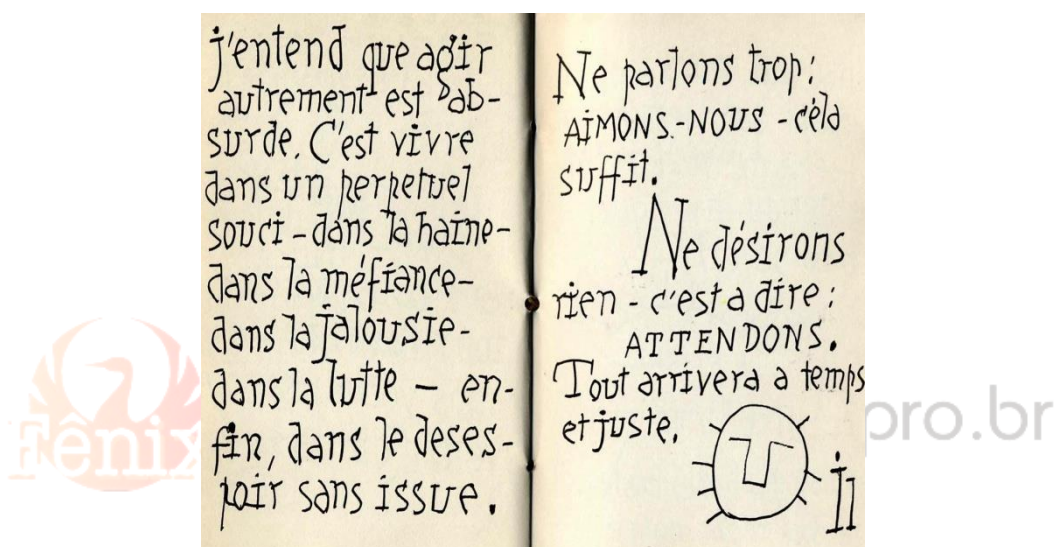 j'entend que agir
autrement est ab-
surde. C'est vivre
dans un perpetuel
souci - dans la haine -
dans la méfiance -
dans la jalousie -
dans la lutte - en-
fin, dans le deses-
poir sans issue.
Ne parlons trop:
AIMONS-NOUS - céla
suffit.
Ne désirons
rien - c'est a dire:
ATTENDONS.
Tout arrivera a temps
et juste.
Fênix
pro.br